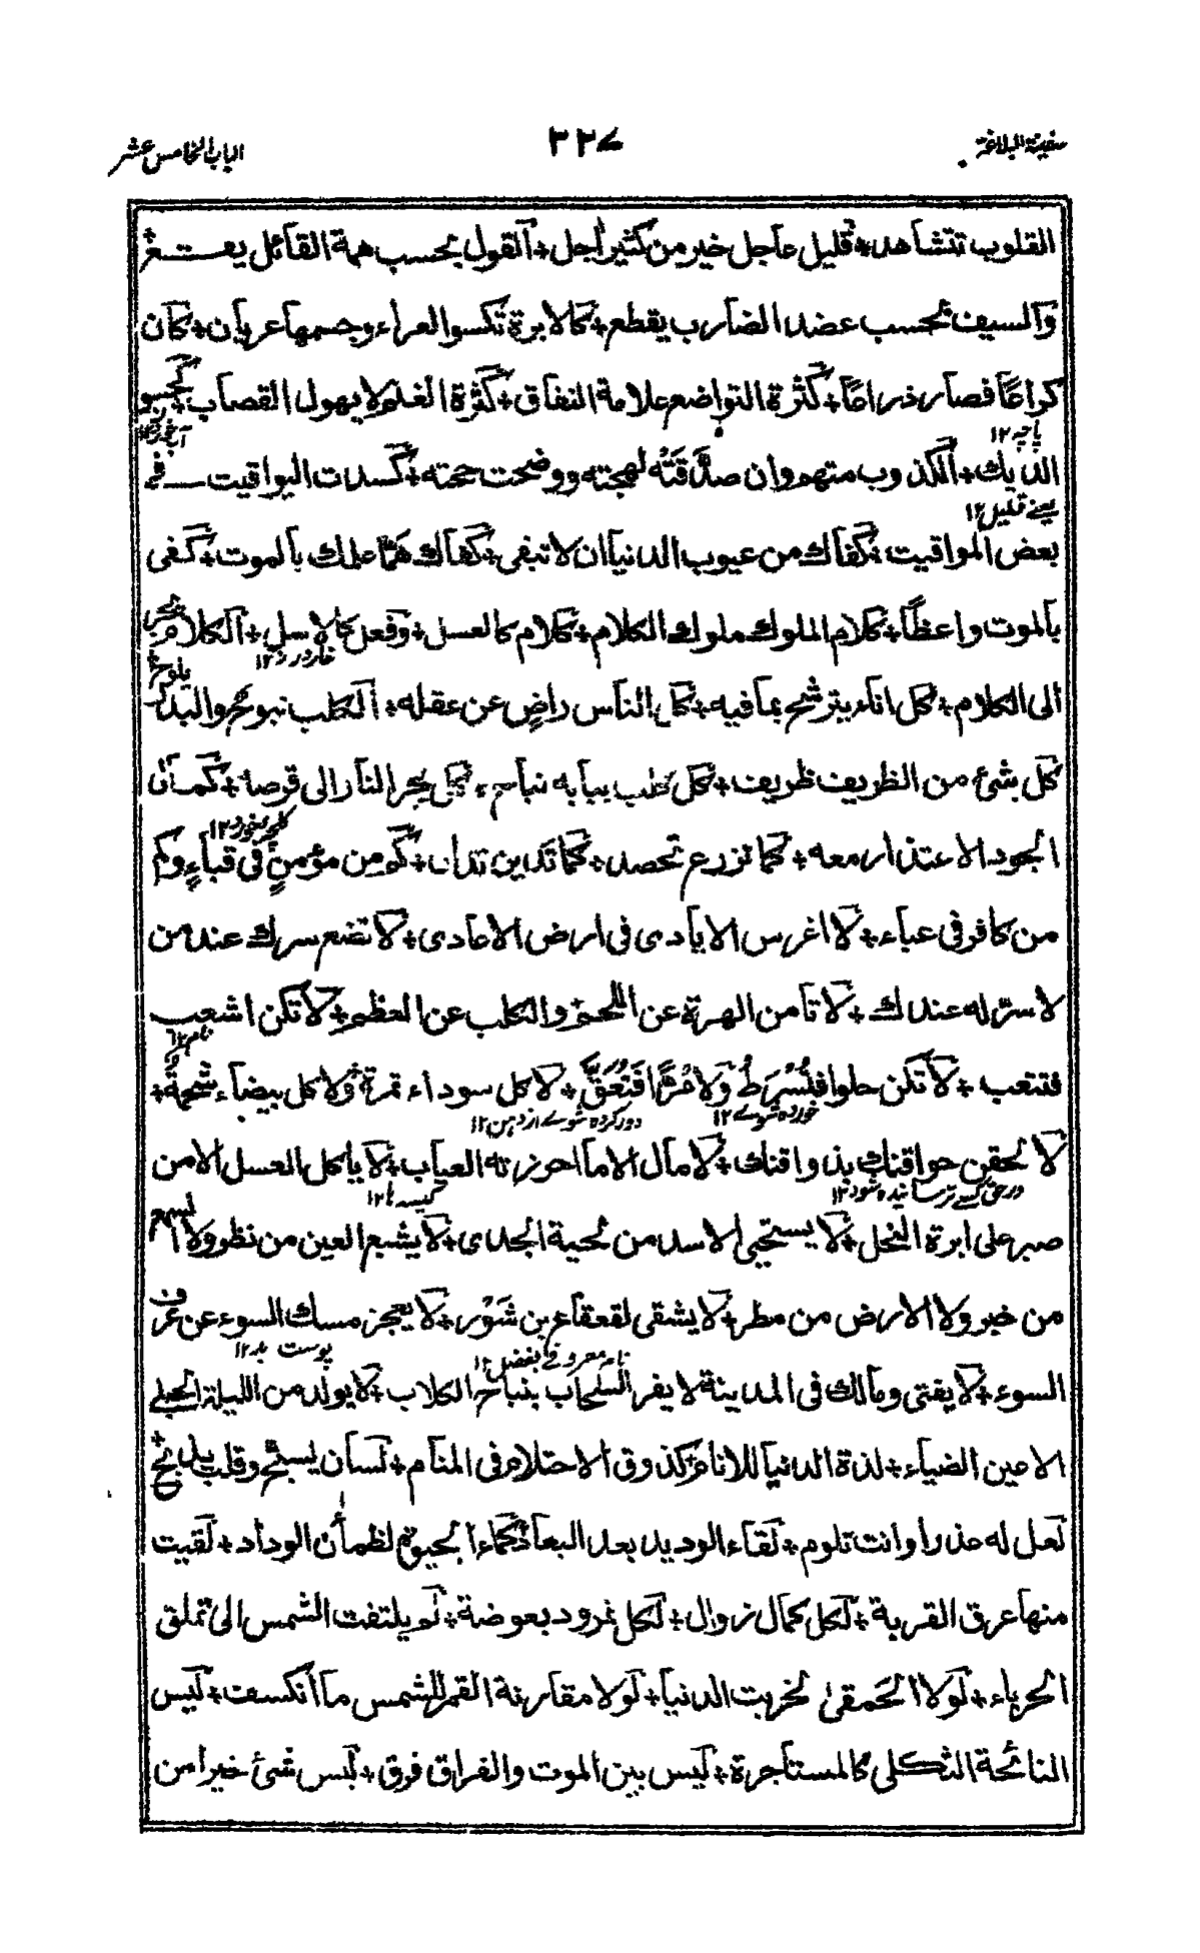 سفينة البلاغة
٣٢٧
الباب الخامس عشر
القلوب تتشاهد + قليل عاجل خير من كثير اجل + القول بحسب همة القائل يقع
والسيف بحسب عضد الضارب يقطع + كالابرة تكسوا العراء وجسمها عريان + كان
كراعًا فصار ذراعًا + كثرة التواضع علامة النفاق + كثرة الغنم لا يهول القصاب + كحسو
پاچه ١٢
الديك + الكذوب متهم وان صدقته لهجته ووضحت حجته + كسدت اليواقيت فى
يعنے قليل ١٢
بعض المواقيت + كفاك من عيوب الدنيا ان لا تبقى + كفاك همًّا علمك بالموت + كفى
بالموت واعظًا + كلام الملوك ملوك الكلام + كلام كالعسل + وفعل كالاسل + الكلام يجر
الى الكلام + كل اناء يترشح بما فيه + كل الناس راضٍ عن عقله + الكلب نبوح والبدر يلوح
كل شئ من الظريف ظريف + كل كلب ببابه نباح + كل يجر النار الى قرصه + كمان
الجود الاعتذار معه + كما تزرع تحصد + كما تدين تدان + كم من مؤمنٍ فى قباءٍ وكم
من كافر فى عباء + لا اغرس الايادى فى ارض الاعادى + لا تضع سرك عند من
لا سرّ له عندك + لا تأمن الهرة عن اللحم والكلب عن العظم + لا تكن اشعب
نام مرد ١٢
فتتعب + لا تكن حلوا فتُسْرَطُ ولا مُرًّا فَتُعَقَّ + لا كل سوداء تمرة ولا كل بيضاء شحمة +
خورده شوے ١٢
دور كرده شوے از دهن ١٢
لا لحقن حواقنك بذواقنك + لا مال الا ما احوزته العياب + لا ياكل العسل الا من
كيسه ها ١٢
صبر على ابرة النحل + لا يستحيى الاسد من لحية الجدى + لا يشبع العين من نظر ولا السمع
من خبر ولا الارض من مطر + لا يشقى لقعقاع بن شَوْر + لا يعجز مسك السوء عن عرف
نام معروف بفضل ١٢
پوست بد ١٢
السوء + لا يفتى ومالك فى المدينة لا يفر السحاب بنباح الكلاب + لا يولد من الليلة الحبلے
الا عين الضياء + لذة الدنيا للانام كذوق الاحتلام فى المنام + لسان يسبح وقلب يذبح +
لعل له عذرا وانت تلوم + لقاء الوديد بعد البعاد كماء الحيوة لظمأن الوداد + لقيت
منها عرق القربة + لكل كمال زوال + لكل نمرود بعوضة + لم يلتفت الشمس الى تملق
الحرباء + لولا الحمقى لخربت الدنيا + لولا مقارنة القمر للشمس ما انكسفت + ليس
النائحة الثكلى كالمستأجرة + ليس بين الموت والفراق فرق + ليس شئ خيرا من